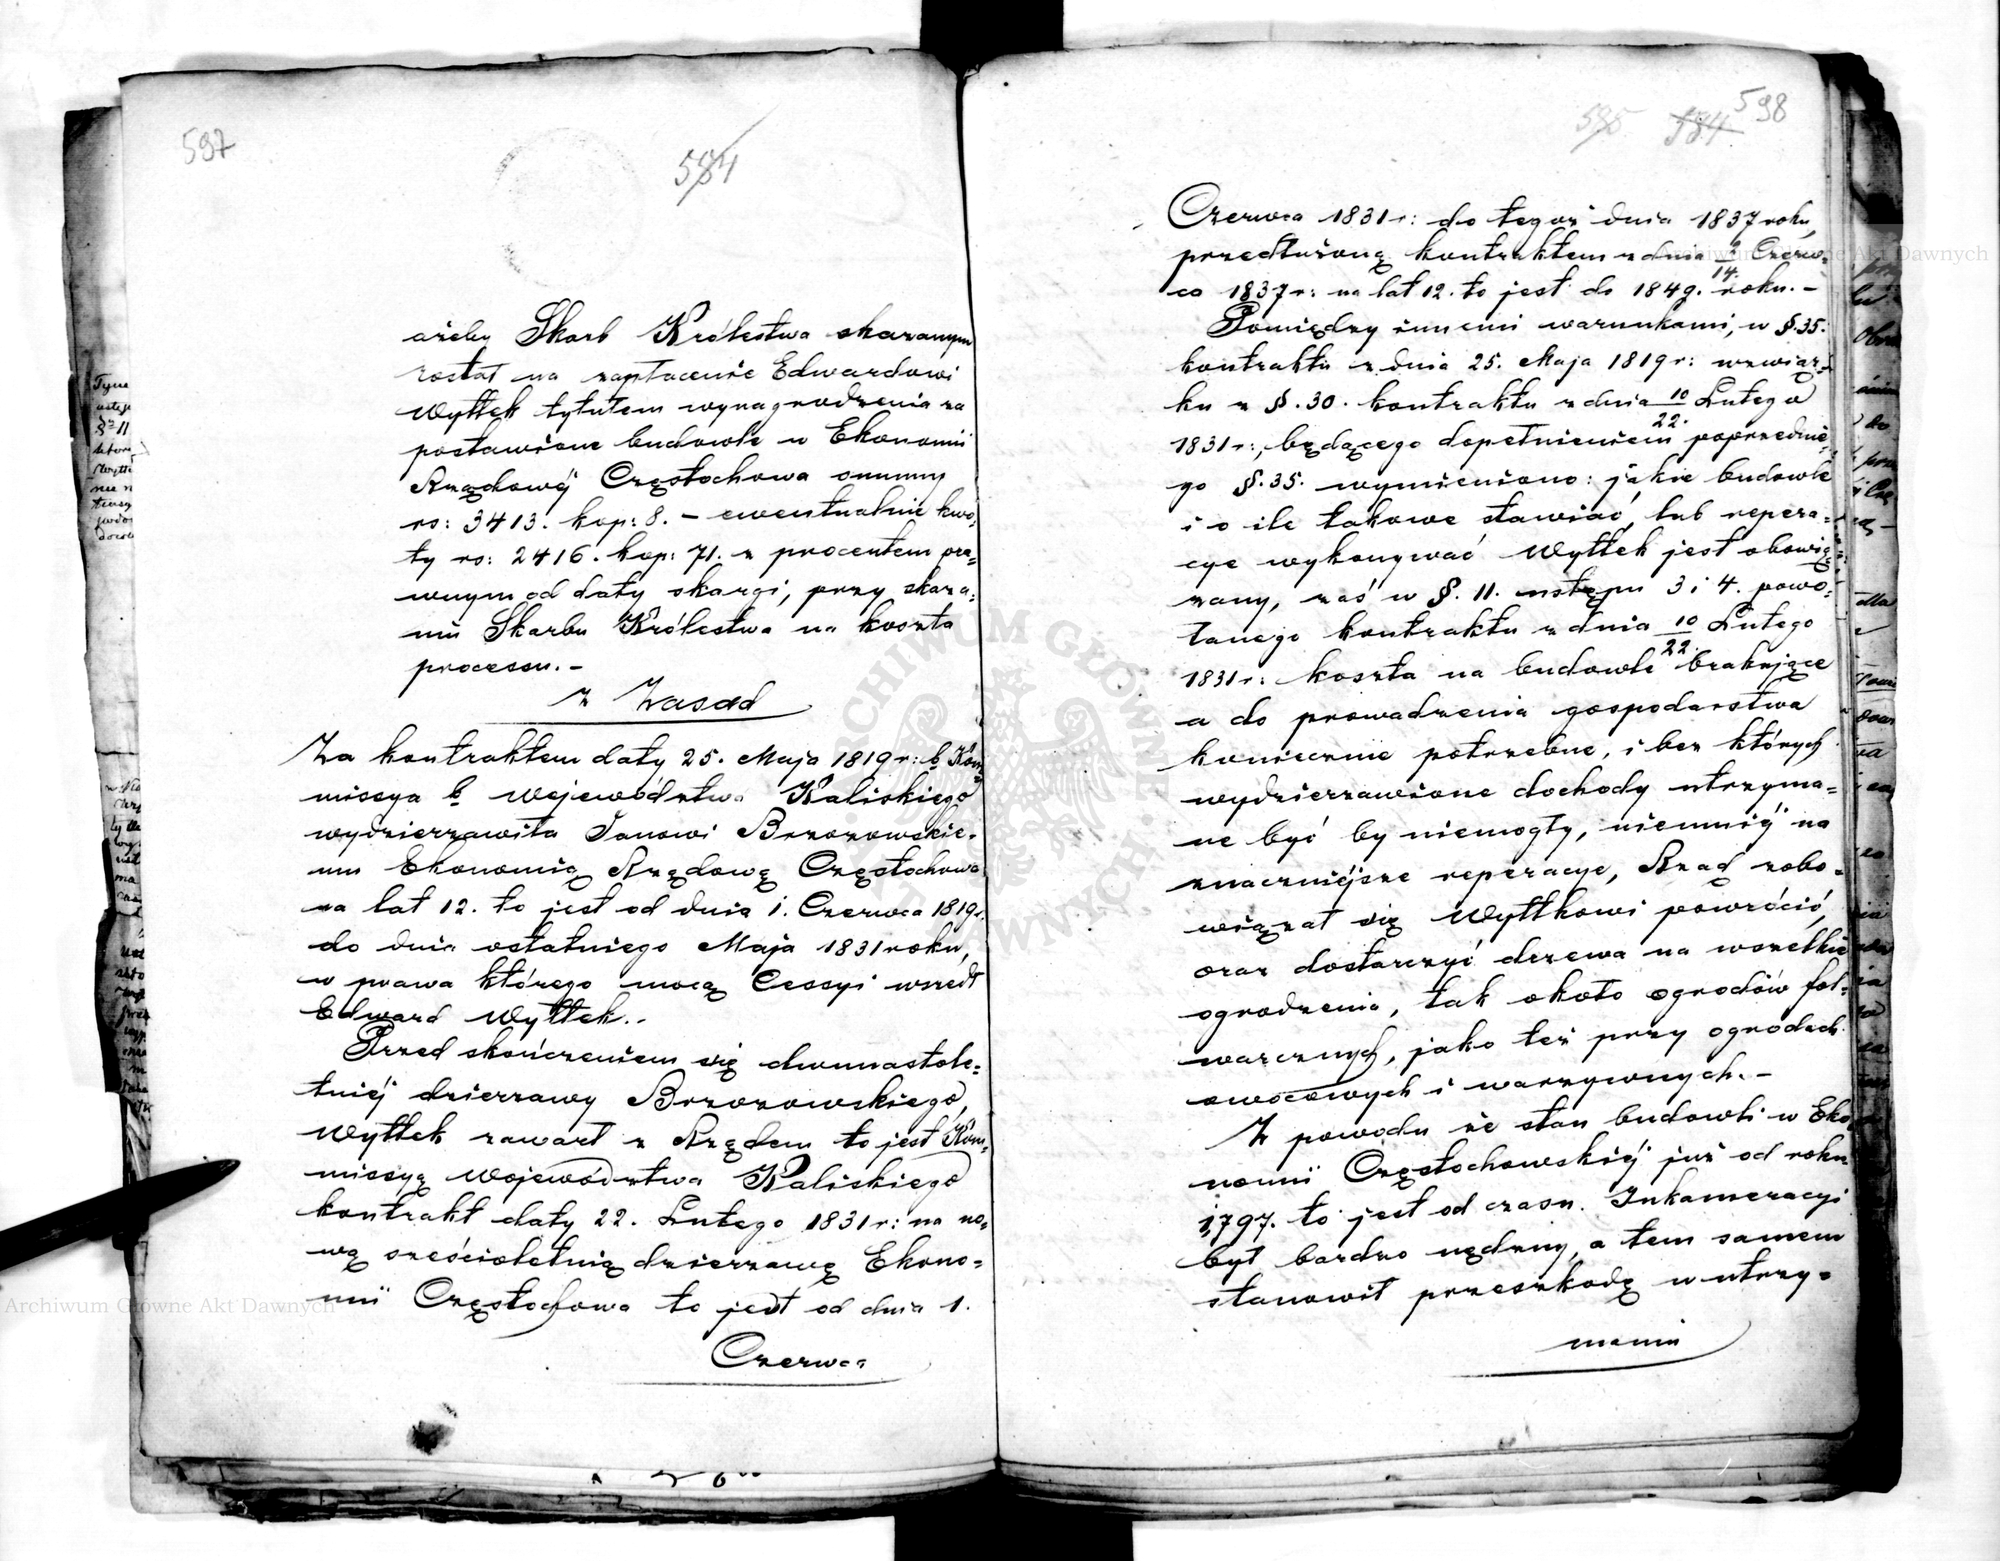 597
584
ażeby Skarb Królestwa skazanym
został na zapłacenie Edwardowi
Wyttek tytułem wynagrodzenia za
postawione budowle w Ekonomii
Rządowéj Częstochowa summy
rs: 3413. kop: 8. – ewentualnie kwo=
ty rs: 2416. kop: 71. z procentem pra=
wnym od daty skargi, przy skaza=
niu Skarbu Królestwa na koszta
processu. –
z Zasad
Za kontraktem daty 25. Maja 1819 r: b. Kom=
missya b. Wojewódstwa Kaliskiego
wydzierzawiła Janowi Brzozowskie=
mu Ekonomią Rządową Częstochowa
na lat 12. to jest od dnia 1. Czerwca 1819 r.
do dnia ostatniego Maja 1831 roku,
w prawa którego mocą Cessyi wszedł
Edward Wyttek. –
Przed skończeniem się dwunastole=
tniéj dzierzawy Brzozowskiego,
Wyttek zawarł z Rządem to jest Kom=
missyą Wojewódstwa Kaliskiego
kontrakt daty 22. Lutego 1831 r: na no=
wą sześcioletnią dzierzawę Ekono=
mii Częstochowa to jest od dnia 1.
Czerwca
595 584 598
Czerwca 1831 r: do tegoż dnia 1837 roku,
przedłużoną kontraktem z dnia 2/14. Czerw=
ca 1837 r: na lat 12. to jest do 1849. roku. –
Pomiędzy innemi warunkami, w §. 35.
kontraktu z dnia 25. Maja 1819 r: w związ=
ku z §. 30. kontraktu z dnia 10/22. Lutego
1831 r:, będącego dopełnieniem poprzednie=
go §. 35. wymieniono: jakie budowle
i o ile takowe stawiać, lub repera=
cye wykonywać Wyttek jest obowią=
zany, zaś w §. 11. ustępu 3 i 4. powo=
łanego kontraktu z dnia 10/22 Lutego
1831 r: koszta na budowle brakujące
a do prowadzenia gospodarstwa
koniecznie potrzebne, i bez których
wydzierzawione dochody utrzyma=
ne być by niemogły, niemniéj na
znaczniéjsze reperacye, Rząd zobo=
wiązał się Wyttkowi powrócić,
oraz dostarczyć drzewa na wszelkie
ogrodzenia, tak około ogrodów fol=
warcznych, jako też przy ogrodach
owocowych i warzywnych. –
Z powodu że stan budowli w Eko=
nomii Częstochowskiéj już od roku
1797. to jest od czasu Inkameracyi
był bardzo nędzny, a tem samem
stanowił przeszkodę w utrzy=
maniu
Archiwum Główne Akt Dawnych
Archiwum Główne Akt Dawnych
ARCHIWUM GŁÓWNE